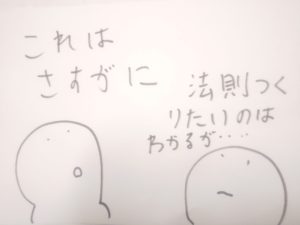 これは
さすがに
法則つく
りたいのは
わかるが‥‥